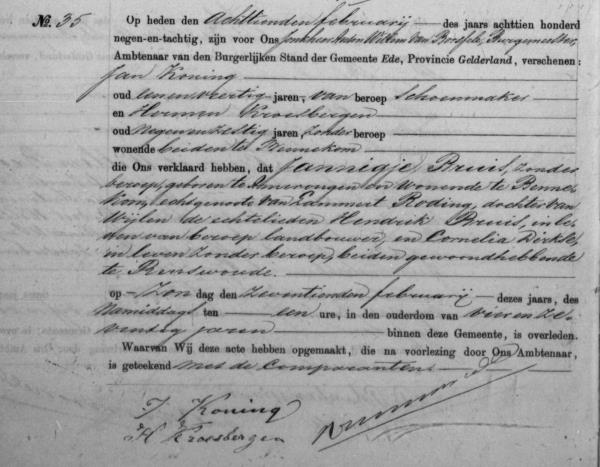 No. 35
Op heden den Achttienden februarij des jaars achttien honderd
negen-en-tachtig, zijn voor Ons Jonkheer Anton Willem van Borssele, Burgemeester,
Ambtenaar van den Burgerlijken Stand der Gemeente Ede, Provincie Gelderland, verschenen:
Jan Koning
oud een en veertig jaren, van beroep Schoenmaker
en Hermen Kroesbergen
oud Negen en Zestig jaren, Zonder beroep
wonende beiden te Bennekom
die Ons verklaard hebben, dat Jannigje Bruis, Zonder
beroep, geboren te Amerongen en Wonende te Benne-
kom, echtgenoote van Lammert Roding, dochter van
Wijlen de echtelieden Hendrik Bruis, in le-
den van beroep landbouwer, en Cornelia Dirksen,
in leven Zonder beroep, beiden gewoond hebbende
te Renswoude.
op Zon dag den Zeventienden februarij dezes jaars, des
Namiddags ten een ure, in den ouderdom van vier en Ze-
ventig jaren binnen deze Gemeente, is overleden.
Waarvan Wij deze acte hebben opgemaakt, die na voorlezing door Ons Ambtenaar,
is geteekend met de Comparanten
J. Koning
H Kroesbergen